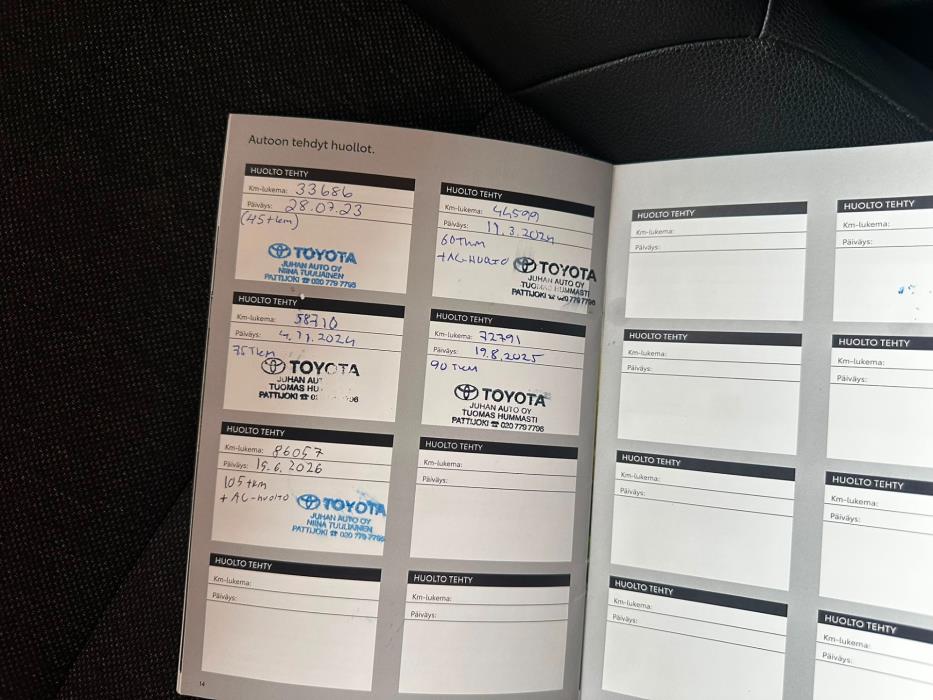 Autoon tehdyt huollot.
HUOLTO TEHTY
Km-lukema: 33686
Päiväys: 28.07.23
(45tkm)
TOYOTA
JUHAN AUTO OY
NIINA TUULIAINEN
PATTIJOKI ☎ 020 779 7796
HUOLTO TEHTY
Km-lukema: 44599
Päiväys: 11.3.2024
60TKM
+AC-HUOLTO
TOYOTA
JUHAN AUTO OY
TUOMAS HUMMASTI
PATTIJOKI ☎ 020 779 7796
HUOLTO TEHTY
Km-lukema: 58710
Päiväys: 4.11.2024
75TKM
TOYOTA
JUHAN AUT
TUOMAS HU
PATTIJOKI ☎ 02
HUOLTO TEHTY
Km-lukema: 72791
Päiväys: 19.8.2025
90TKM
TOYOTA
JUHAN AUTO OY
TUOMAS HUMMASTI
PATTIJOKI ☎ 020 779 7796
HUOLTO TEHTY
Km-lukema: 86057
Päiväys: 15.6.2026
105tkm
+ AC-huolto
TOYOTA
JUHAN AUTO OY
NIINA TUULIAINEN
PATTIJOKI ☎ 020 779 7796
HUOLTO TEHTY
Km-lukema:
Päiväys:
HUOLTO TEHTY
Km-lukema:
Päiväys:
HUOLTO TEHTY
Km-lukema:
Päiväys:
14
HUOLTO TEHTY
Km-lukema:
Päiväys:
HUOLTO TEHTY
Km-lukema:
Päiväys:
HUOLTO TEHTY
Km-lukema:
Päiväys:
HUOLTO TEHTY
Km-lukema:
Päiväys:
HUOLTO TEHTY
Km-lukema:
Päiväys:
HUOLTO TEHTY
Km-lukema:
Päiväys:
HUOLTO TEHTY
Km-lukema:
Päiväys:
HUOLTO TEHTY
Km-lukema:
Päiväys: